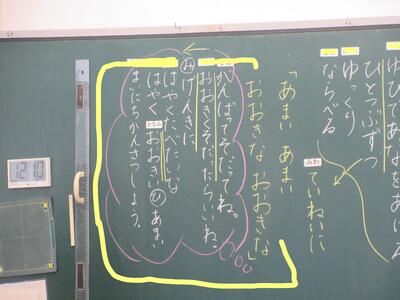 ゆびであなをあける
ひとつぶずつ
ゆっくり
ならべる
みわ
ていねいに
「あまい あまい
おおきな おおきな」
がんばってそだってね。
おおきくそだったらいいね。
み げんきに
はやくたべたいな
はやく おおきい ひ あまい
まいにちかんさつしよう。